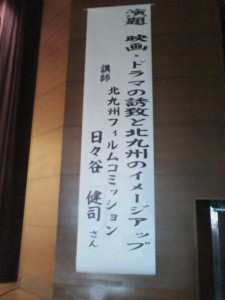 演題 映画・ドラマの誘致と北九州のイメージアップ
講師 北九州フィルムコミッション
日々谷 健司 さん